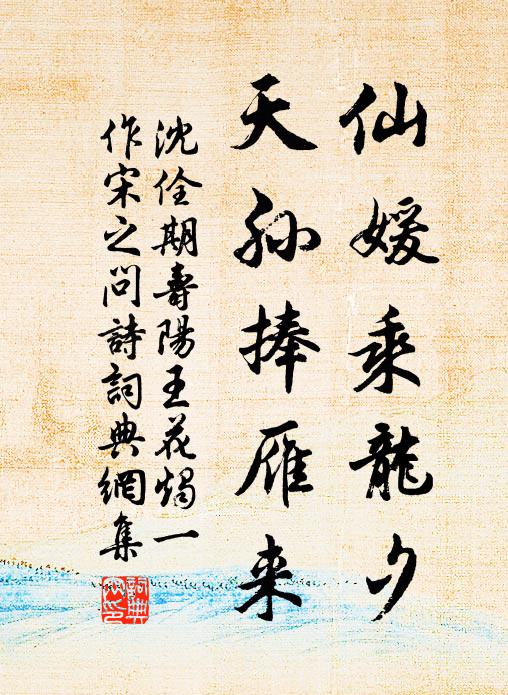 仙媛乘龍夕
天孫捧雁来
沈佺期壽陽王花燭一
作宋之问詩詞典網集